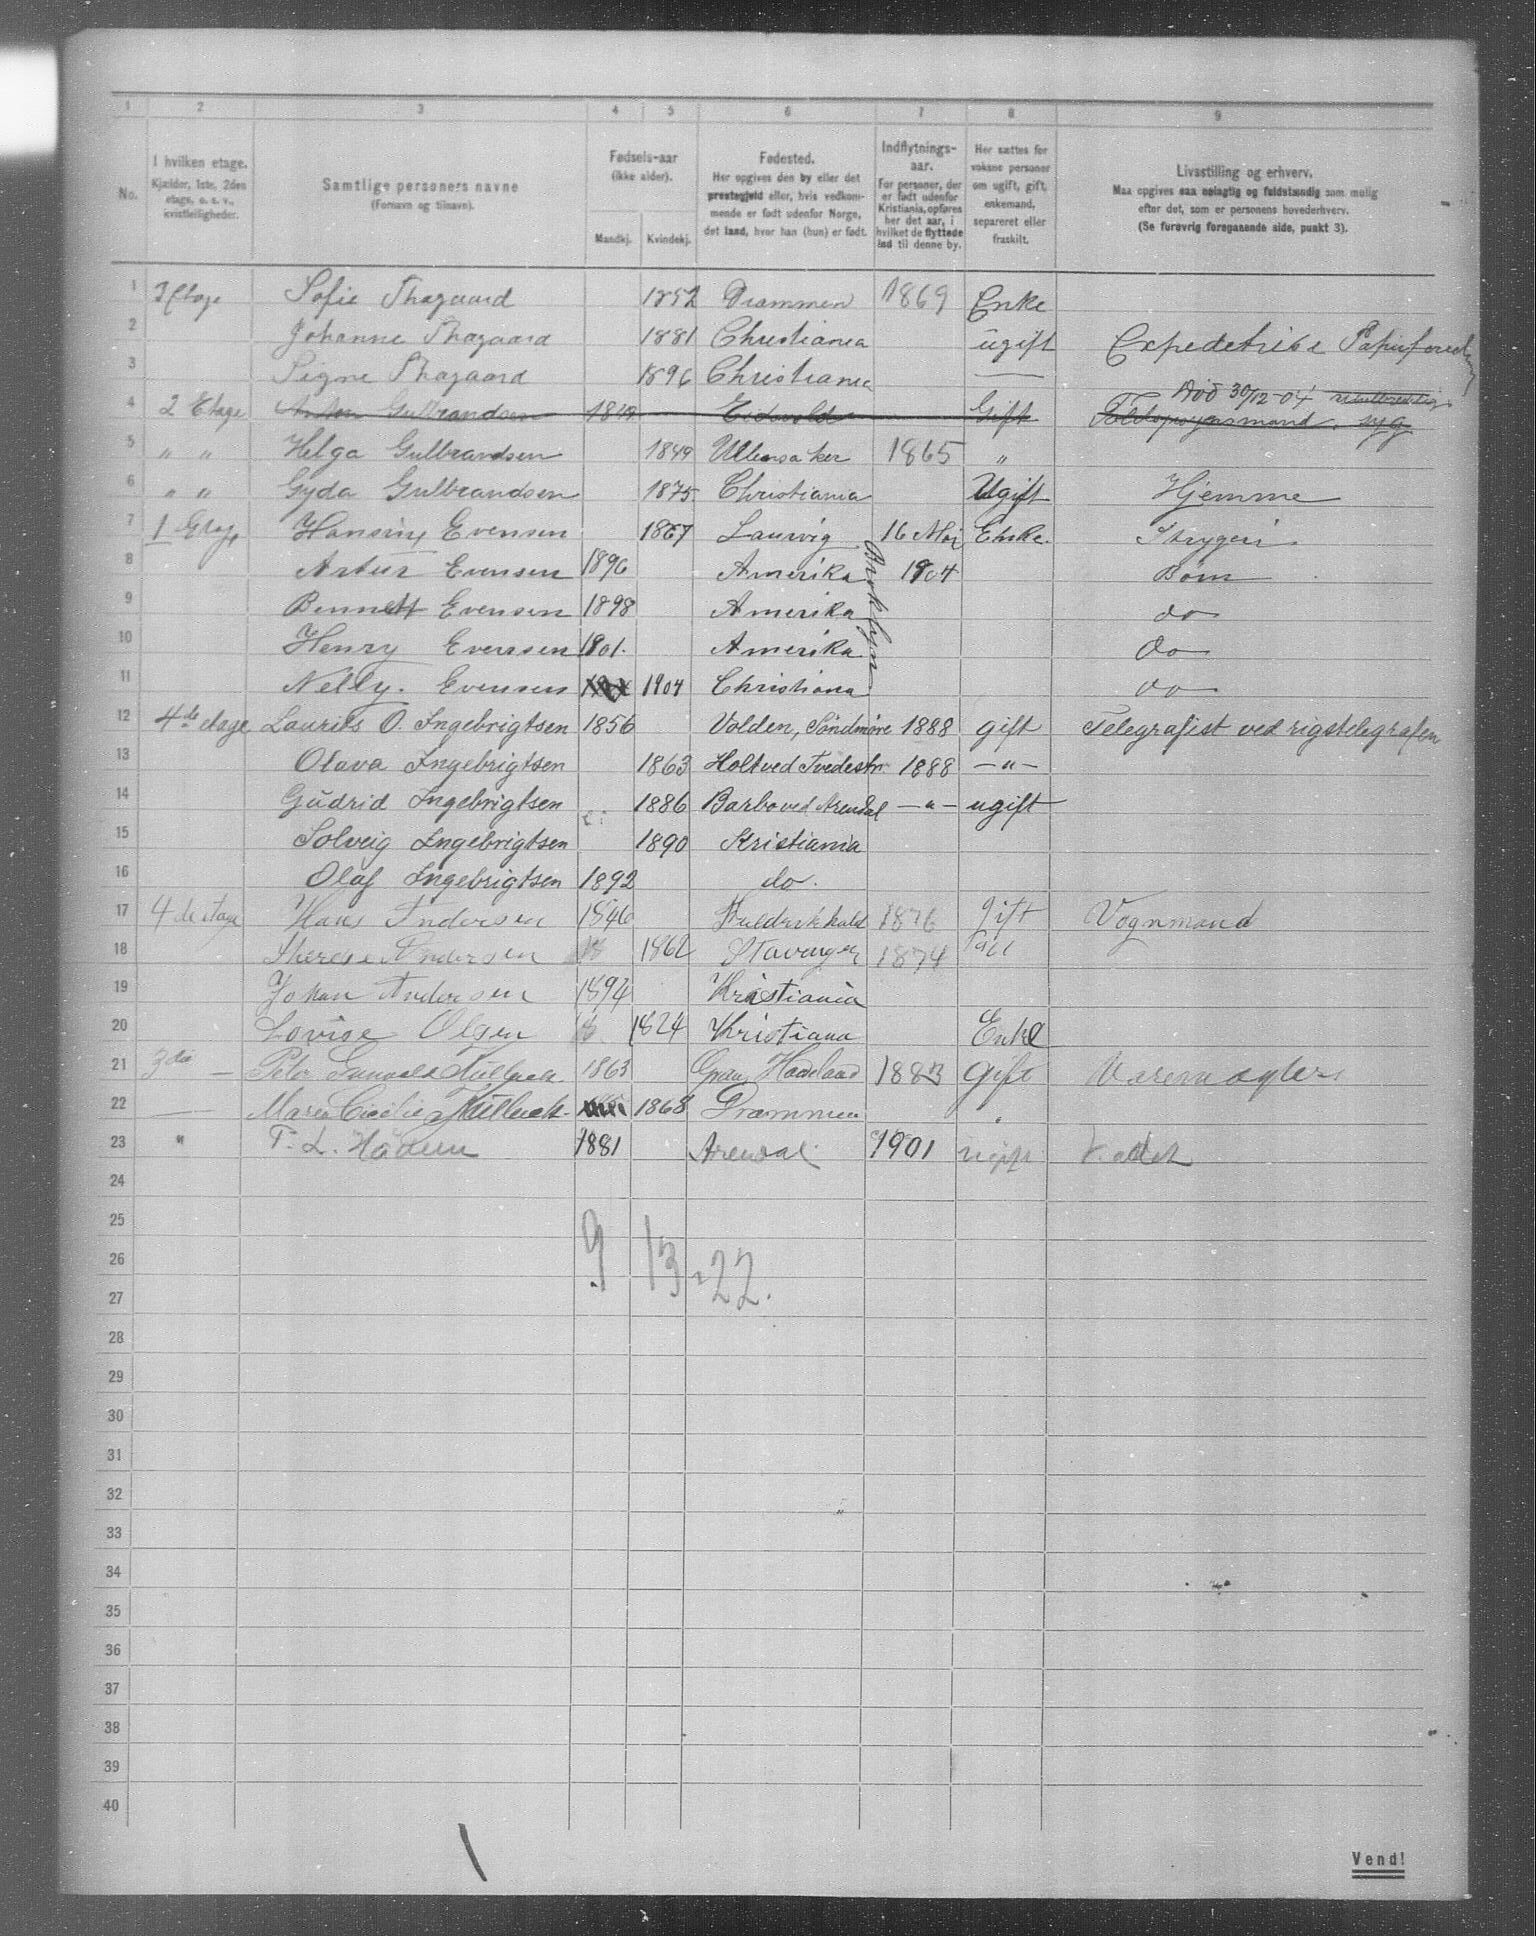 1 2 3 4 5 6 7 8 9
No. I hvilken etage. Kjælder, 1ste, 2den etage, o. s. v., kvistleiligheder. Samtlige personers navne (Fornavn og tilnavn). Fødsels-aar (ikke alder). Mandkj. Kvindekj. Fødested. Her opgives den by eller det prestegjeld eller, hvis vedkommende er født udenfor Norge, det land, hvor han (hun) er født. Indflytnings-aar. For personer, der er født udenfor Kristiania, opføres her det aar, i hvilket de flyttede ind til denne by. Her sættes for voksne personer om ugift, gift, enkemand, separeret eller fraskilt. Livsstilling og erhverv. Maa opgives saa nøiagtig og fuldstændig som mulig efter det, som er personens hovederhverv. (Se forøvrig foregaaende side, punkt 3).
1 Etage Sofie Thagaard 1852 Drammen 1869 Enke
2 Johanne Thagaard 1881 Christiania ugift Expedetrise
3 Signe Thagaard 1896 Christiania —
Død 30/12-04
4 2 Etage Anton Gulbrandsen 1849 Eidsvold Gift syg
5 " " Helga Gulbrandsen 1849 Ullensaker 1865 "
6 " " Gyda Gulbrandsen 1875 Christiania Ugift Hjemme
7 1 Etage Hansine Evensen 1867 Laurvig 16 Mai Enke. Strygeri
8 Artur Evensen 1896 Amerika 1904 Børn
9 Bennett Evensen 1898 Amerika do
10 Henry Evensen 1901. Amerika do
11 Nelly. Evensen 1904 Christiana do
12 4de etage Laurits O. Ingebrigtsen 1856 Volden, Søndmøre 1888 gift Telegrafist ved rigstelegrafen
13 Olava Ingebrigtsen 1863 Holt ved Tvedestr. 1888 — " —
14 Gudrid Ingebrigtsen 1886 Barbo ved Arendal — " — ugift
15 Solveig Ingebrigtsen 1890 Kristiania
16 Olaf Ingebrigtsen 1892 do.
17 4de etage Hans Andersen 1846 Fredrikhald 1876 gift Vognmand
18 Therese Andersen 1862 Stavanger 1874
19 Johan Andersen 1894 Kristiania
20 Lovise Olsen 1824 Kristiana Enke
21 3die — Peter 1863 Gran Hadeland 1883 gift
22 — Maren Cicilie 1868 Drammen
23 " 1881 Arendal 1901 ugift Kadet
24
25
26 9 13 = 22.
27
28
29
30
31
32
33
34
35
36
37
38
39
40
Vend!